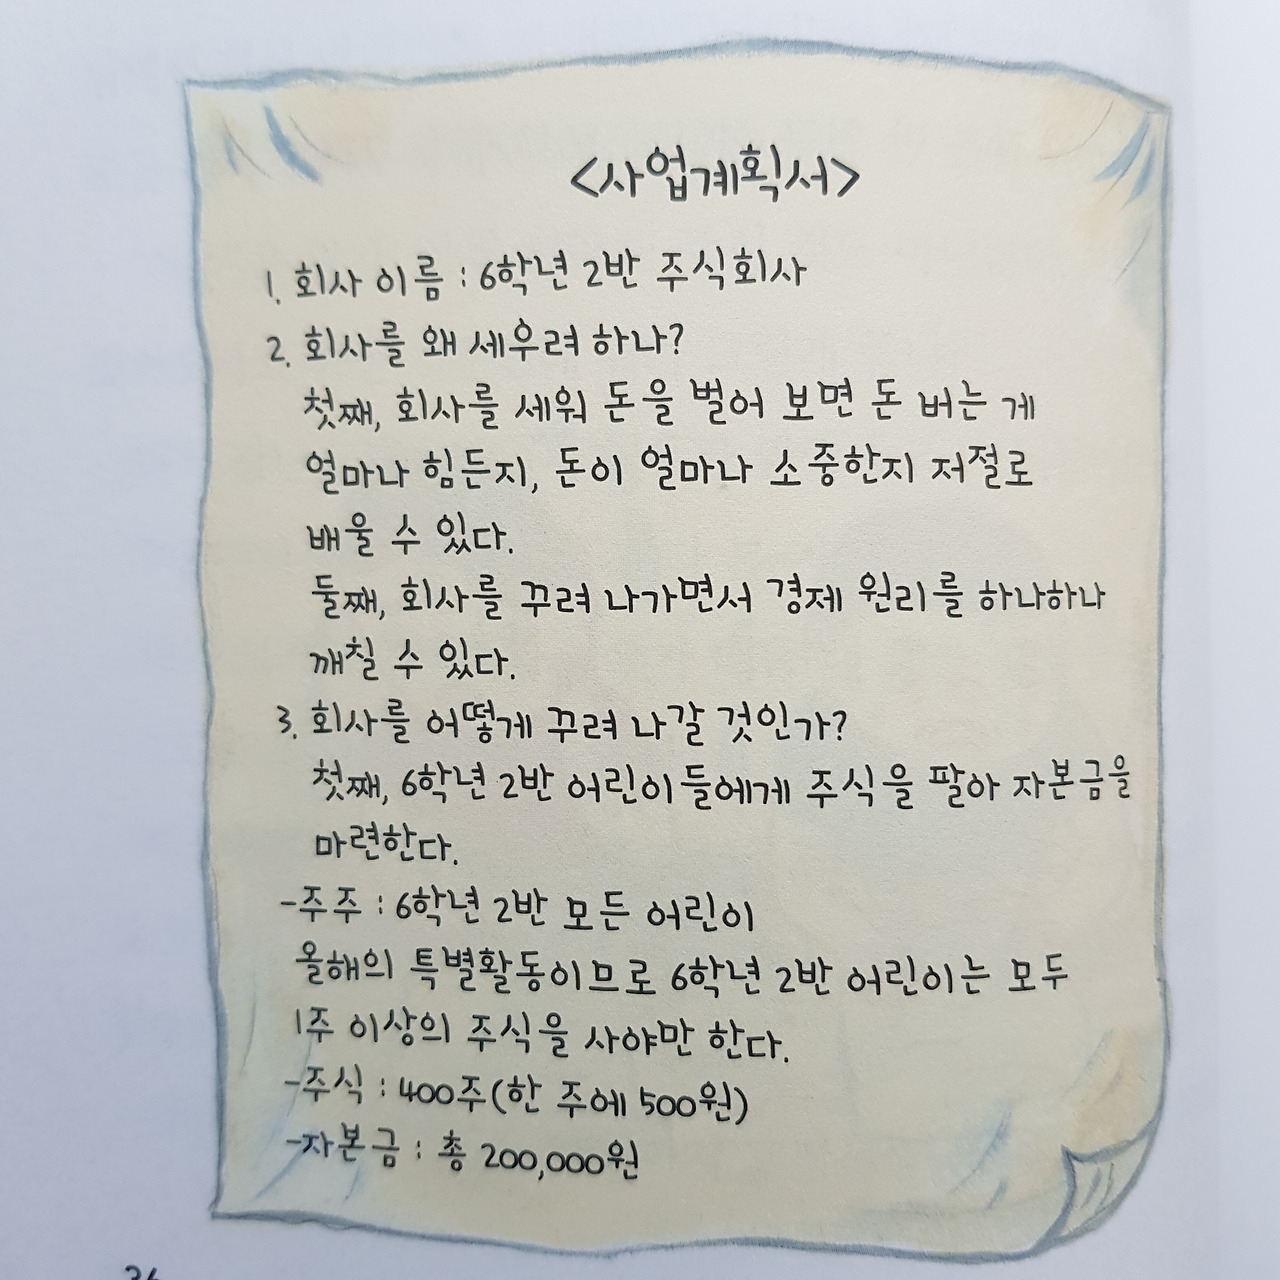 <사업계획서>
1. 회사 이름 : 6학년 2반 주식회사
2. 회사를 왜 세우려 하나?
첫째, 회사를 세워 돈을 벌어 보면 돈 버는 게
얼마나 힘든지, 돈이 얼마나 소중한지 저절로
배울 수 있다.
둘째, 회사를 꾸려 나가면서 경제 원리를 하나하나
깨칠 수 있다.
3. 회사를 어떻게 꾸려 나갈 것인가?
첫째, 6학년 2반 어린이들에게 주식을 팔아 자본금을
마련한다.
-주주 : 6학년 2반 모든 어린이
올해의 특별활동이므로 6학년 2반 어린이는 모두
1주 이상의 주식을 사야만 한다.
-주식 : 400주(한 주에 500원)
-자본금 : 총 200,000원